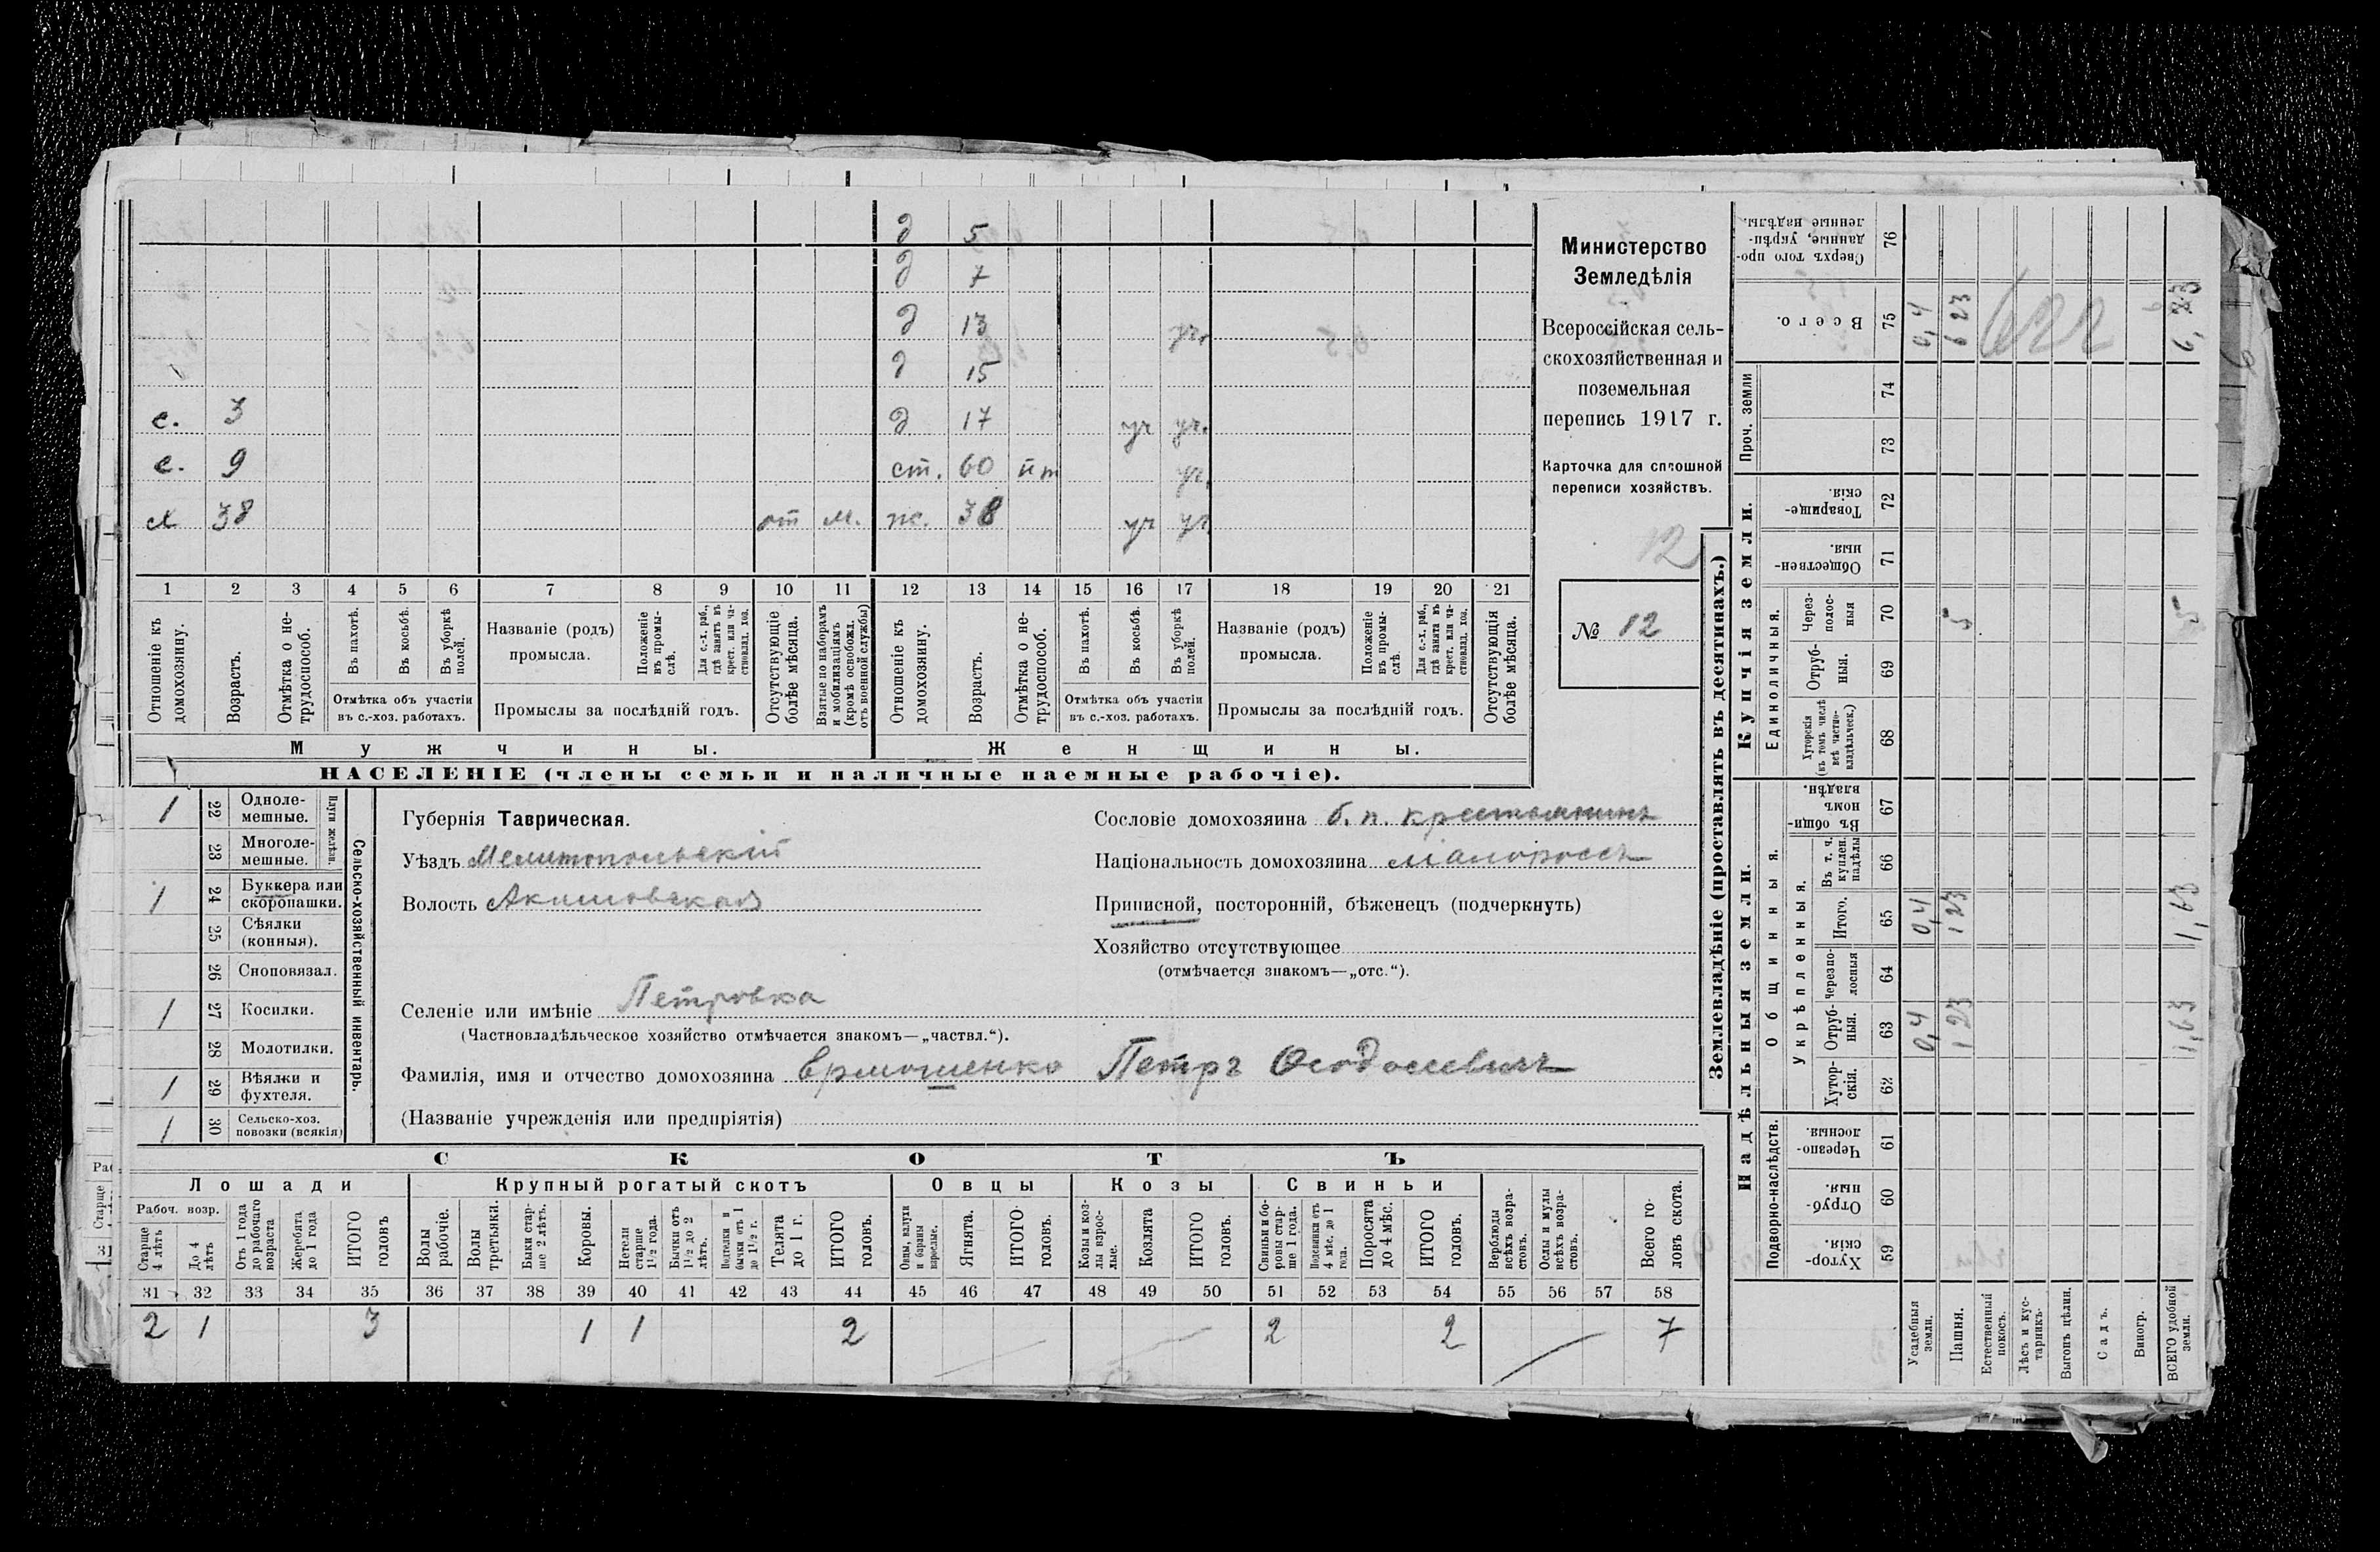 д 5
д 7
д 13 уч.
д 15
с. 3 д 17 уч уч.
с. 9 ст. 60 уч.
х 38 от м. ж. 38 уч уч.
1 2 3 4 5 6 7 8 9 10 11 12 13 14 15 16 17 18 19 20 21
Отношеніе къ домохозяину.
Возрастъ.
Отмѣтка о не-трудоспособ.
Въ пахотѣ.
Въ косьбѣ.
Въ уборкѣ полей.
Отмѣтка объ участіи въ с.-хоз. работахъ.
Названіе (родъ) промысла.
Положеніе въ промы-слѣ.
Для с.-х. раб., гдѣ занятъ въ крест. или ча-стновлад. хоз.
Промыслы за послѣдній годъ.
Отсутствующіе болѣе мѣсяца.
Взятые по наборамъ и мобилизаціямъ (кромѣ освобожд. отъ военной службы)
Отношеніе къ домохозяину.
Возрастъ.
Отмѣтка о не-трудоспособ.
Въ пахотѣ.
Въ косьбѣ.
Въ уборкѣ полей.
Отмѣтка объ участіи въ с.-хоз. работахъ.
Названіе (родъ) промысла.
Положеніе въ промы-слѣ.
Для с.-х. раб., гдѣ занята въ крест. или ча-стновлад. хоз.
Промыслы за послѣдній годъ.
Отсутствующія болѣе мѣсяца.
Мужчины. Женщины.
НАСЕЛЕНІЕ (члены семьи и наличные наемные рабочіе).
Министерство
Земледѣлія
Всероссійская сель-
скохозяйственная и
поземельная
перепись 1917 г.
Карточка для сплошной
переписи хозяйствъ.
12
№ 12
Сельско-хозяйственный инвентарь.
Плуги желѣз.
1 22 Одноле-мешные.
23 Многоле-мешные.
1 24 Буккера или скоропашки.
25 Сѣялки (конныя).
26 Сноповязал.
1 27 Косилки.
28 Молотилки.
1 29 Вѣялки и фухтеля.
1 30 Сельско-хоз. повозки (всякія)
Губернія Таврическая.
Уѣздъ Мелитопольскій
Волость Акимовская
Сословіе домохозяина б. п. крестьянинъ
Національность домохозяина малороссъ
Приписной, посторонній, бѣженецъ (подчеркнуть)
Хозяйство отсутствующее
(отмѣчается знакомъ—„отс.“).
Селеніе или имѣніе Петровка
(Частновладѣльческое хозяйство отмѣчается знакомъ—„частвл.“).
Фамилія, имя и отчество домохозяина Ермошенко Петръ Ѳеодосіевичъ
(Названіе учрежденія или предпріятія)
СКОТЪ
Лошади Крупный рогатый скотъ Овцы Козы Свиньи
Рабоч. возр.
Старше 4 лѣтъ
До 4 лѣтъ
Отъ 1 года до рабочаго возраста
Жеребята до 1 года
ИТОГО головъ
Волы рабочіе.
Волы третьяки.
Быки стар-ше 2 лѣтъ.
Коровы.
Нетели старше 1½ года.
Бычки отъ 1½ до 2 лѣтъ.
Нетелки и бычки отъ 1 до 1½ г.
Телята до 1 г.
ИТОГО головъ.
Овцы, валухи и бараны взрослые.
Ягнята.
ИТОГО головъ.
Козы и коз-лы взрос-лые.
Козлята
ИТОГО головъ.
Свиньи и бо-ровы стар-ше 1 года.
Подсвинки отъ 4 мѣс. до 1 года.
Поросята до 4 мѣс.
ИТОГО головъ.
Верблюды всѣхъ возра-стовъ.
Ослы и мулы всѣхъ возра-стовъ.
Всего го-ловъ скота.
31 32 33 34 35 36 37 38 39 40 41 42 43 44 45 46 47 48 49 50 51 52 53 54 55 56 57 58
2 1 3 1 1 2 2 2 7
Землевладѣніе (проставлять въ десятинахъ.)
Купчія земли.
Надѣльныя земли.
Сверхъ того про-данные, укрѣп-ленные надѣлы. 76
Всего. 75 0,4 6 23 622 6,23
Проч. земли 74
73
Товарище-скія. 72
Обществен-ныя. 71
Единоличныя.
Через-полос-ныя 70 5 5
Отруб-ныя. 69
Хуторскія (въ томъ числѣ всѣ частно-владѣльческ.) 68
Общинныя.
Въ общин-номъ владѣн. 67
Укрѣпленныя.
Въ т. ч. куплен. надѣлы 66
Итого. 65 0,4 1 23 1,63
Черезпо-лосныя 64
Отруб-ныя. 63 0,4 1 23 1,63
Хутор-скія. 62
Подворно-наслѣдств.
Черезпо-лосныя. 61
Отруб-ныя. 60
Хутор-скія. 59
Усадебныя земли.
Пашня.
Естественный покосъ.
Лѣсъ и кус-тарникъ.
Выгонъ цѣлин.
Садъ.
Виногр.
ВСЕГО удобной земли.